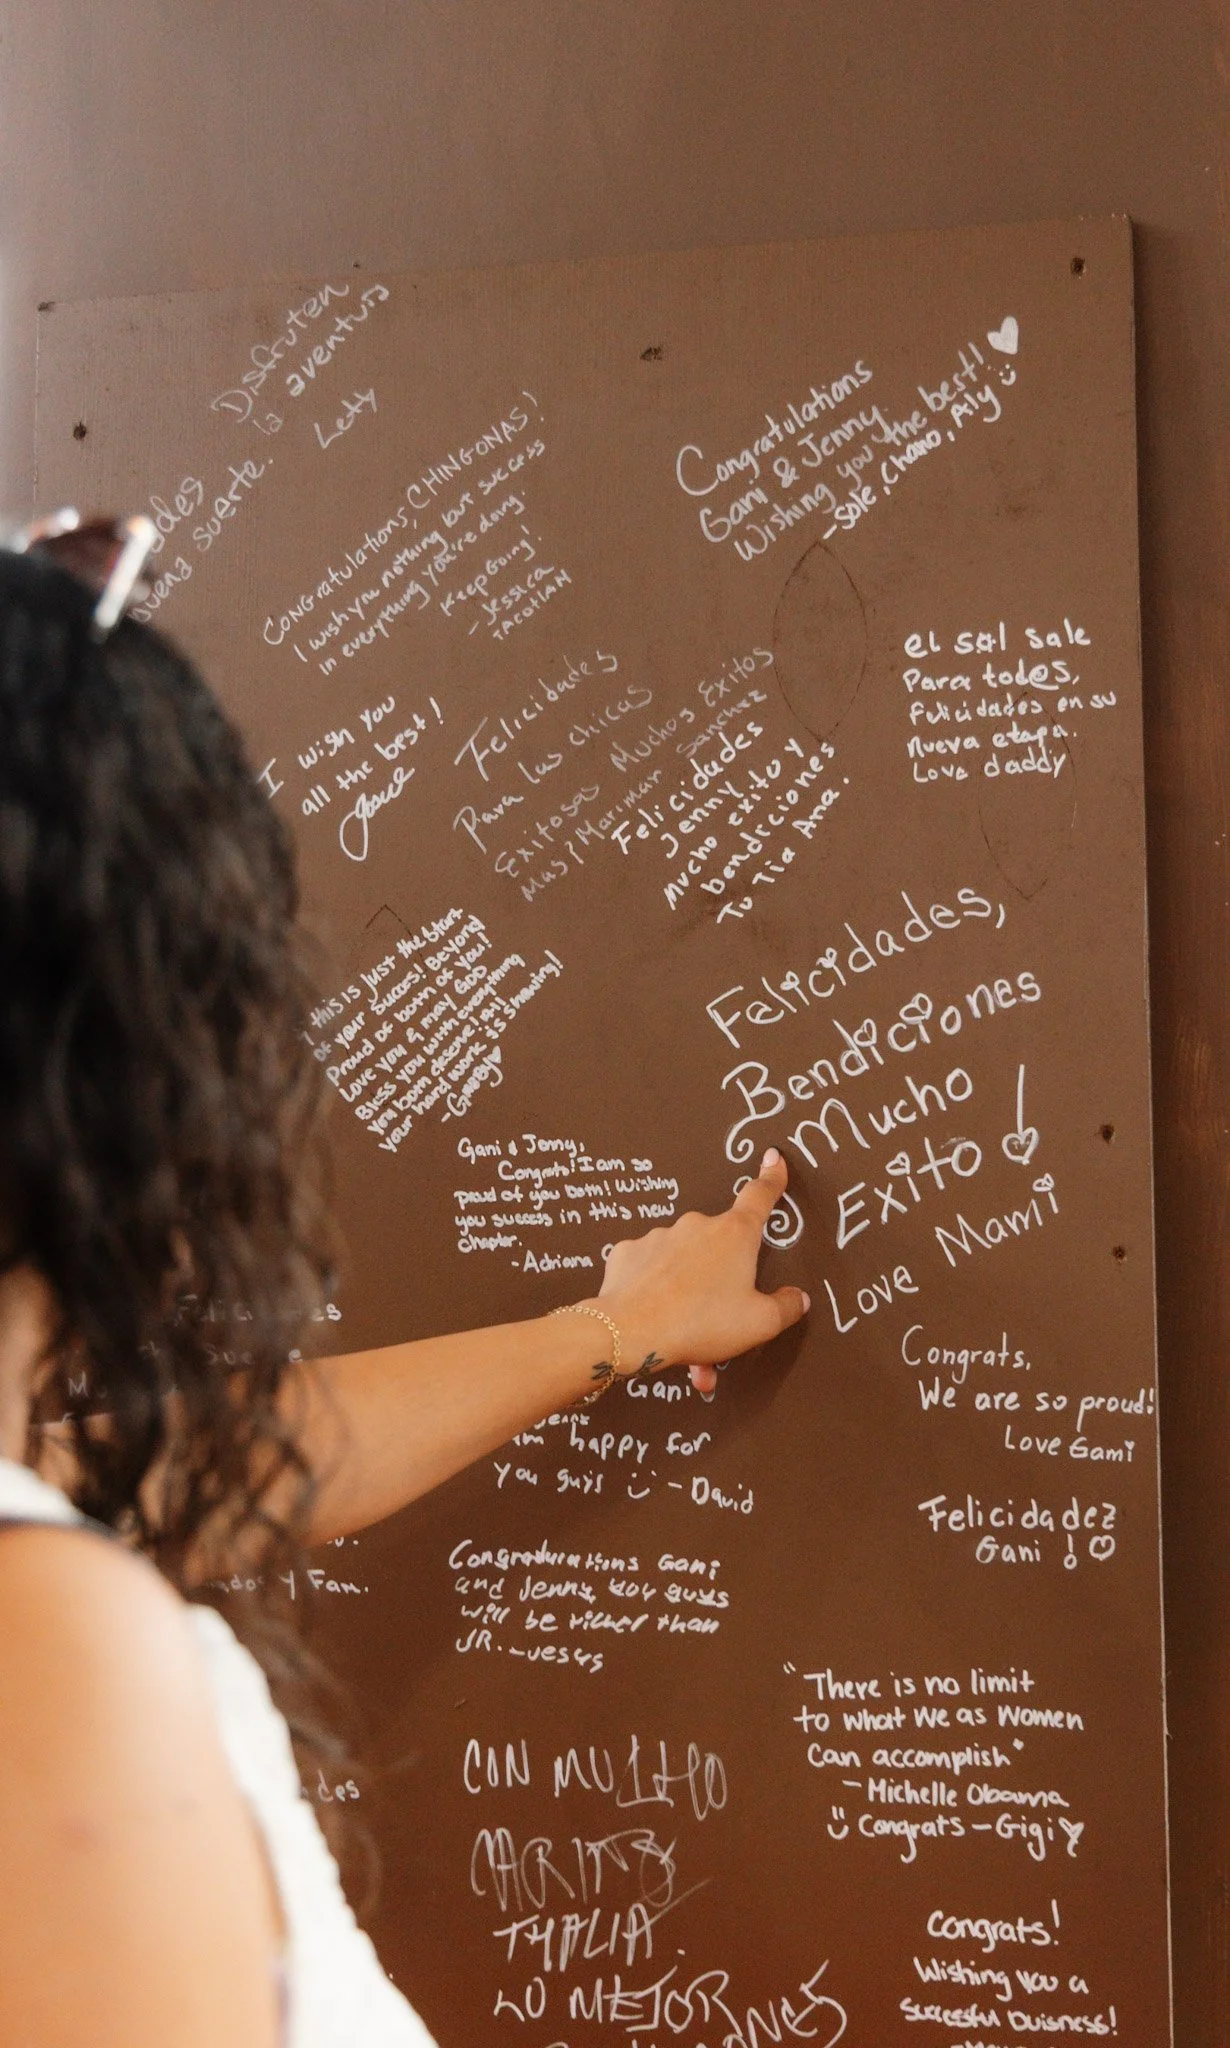 Disfruten
la aventura
Lety
buena suerte.
CONGratulations, CHINGONAS!
I wish you nothing but success
in everything you're doing.
Keep Going!
-Jessica
TACOTLAN
Congratulations
Gani & Jenny.
Wishing you the best!
-Sole, Chano, Aly
el sol sale
Para tod@s,
felicidades en su
nueva etapa.
Love daddy
I wish you
all the best!
Felicidades
Para las chicas
Exitosas Muchos Exitos
Mas! Marimar Sanchez
Felicidades
Jenny
Mucho exito y
bendiciones
Tu Tia Ana.
this is just the start
of your success! Beyond
Proud of both of you!
Love you & may GOD
Bless you with everything
you both deserve in it!
your hard work is showing!
-Gabby
Felicidades,
Bendiciones
Mucho
Exito!
Love Mami
Gani & Jenny,
Congrats! I am so
proud of you both! Wishing
you success in this new
chapter.
-Adriana
Congrats,
We are so proud!
Love Gami
Gani
am happy for
you guys - David
Felicidadez
Gani!
y Fam.
Congradurations Gani
and Jenny, you guys
will be richer than
JR. -Jesus
"There is no limit
to what we as women
can accomplish"
-Michelle Obama
Congrats - Gigi
CON MUCHO
THALIA.
LO MEJOR
Congrats!
Wishing you a
successful buisness!